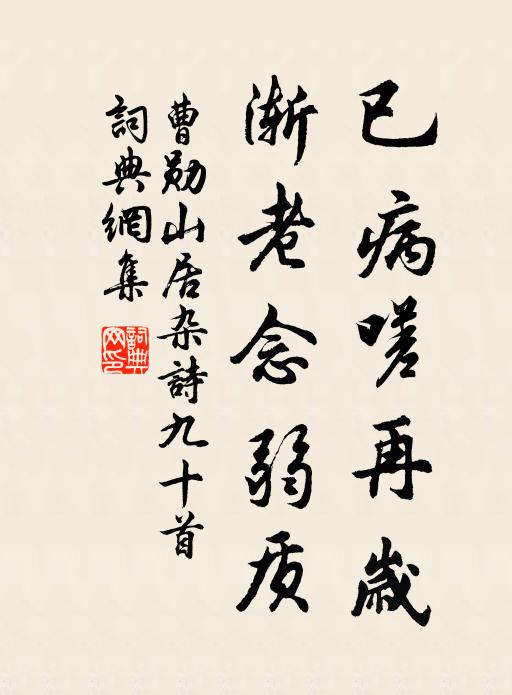 已病嗟再歲
漸老念弱质
曹勋山居杂詩九十首
詞典網集
詞典網印